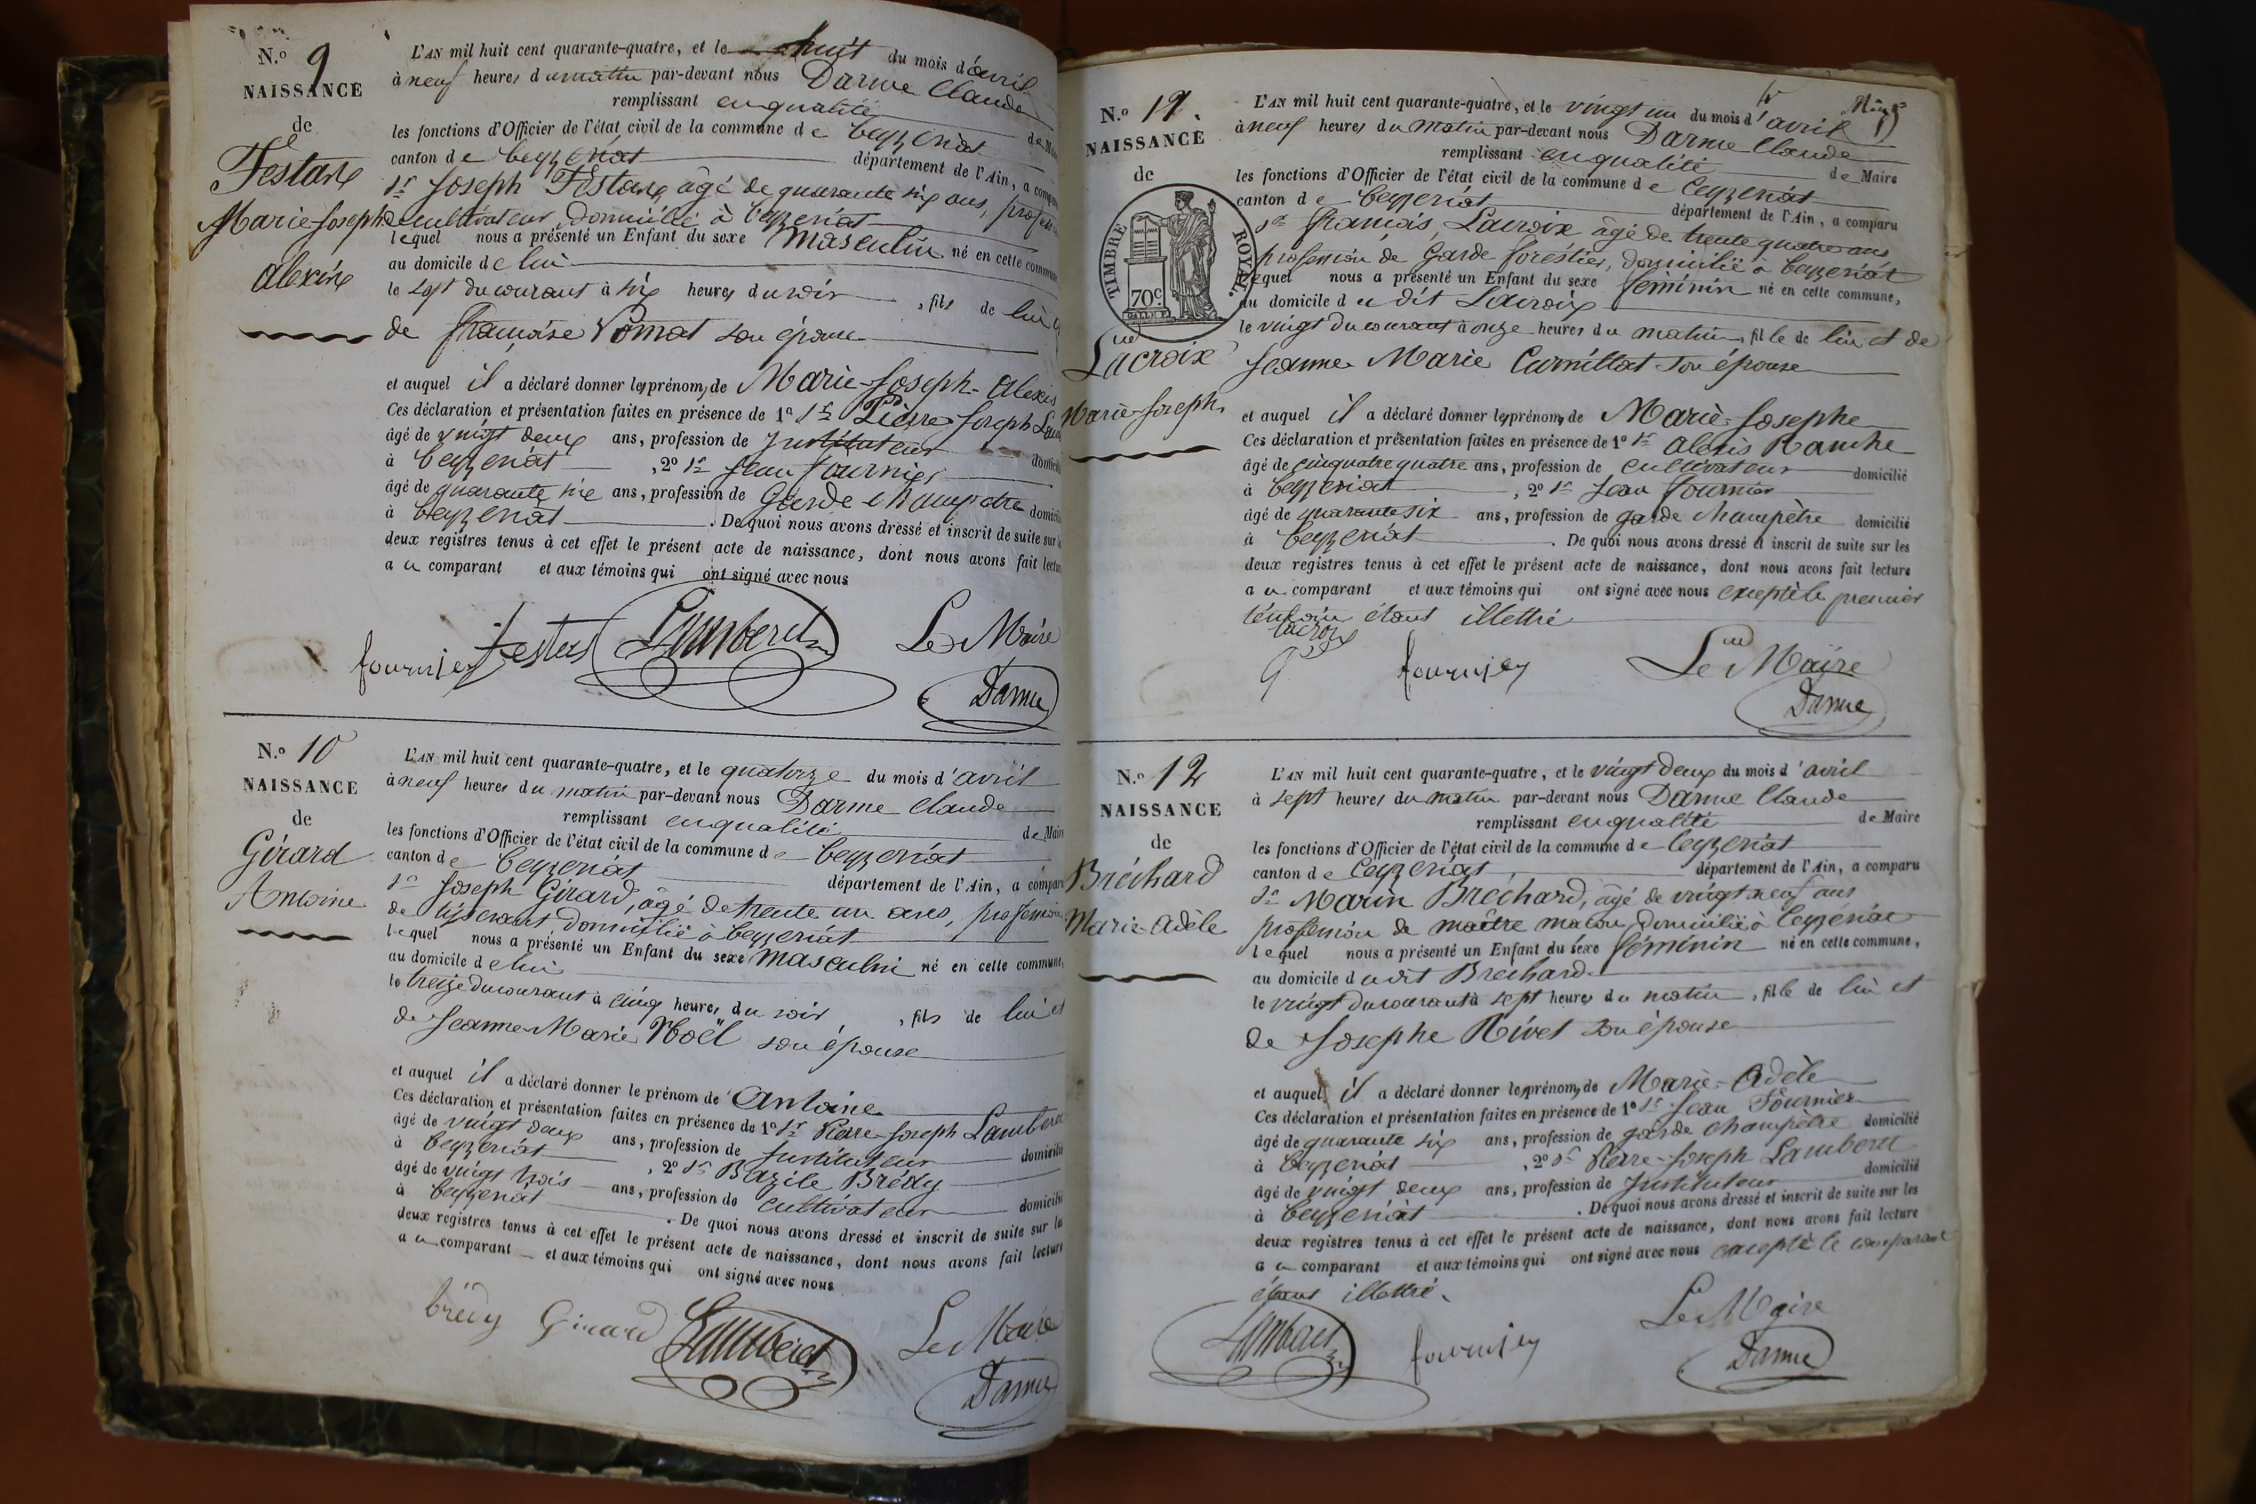 N.o 9
NAISSANCE
de
Marie Joseph
Alexis
L'AN mil huit cent quarante-quatre, et le huit du mois d'avril
à neuf heures du matin par-devant nous Darme Claude
remplissant en qualité de
les fonctions d'Officier de l'état civil de la commune de Ceyzeriat
canton de Ceyzeriat département de l'Ain, a
Sr Joseph âgé de quarante six ans,
cultivateur, domicilié à Ceyzeriat
lequel nous a présenté un Enfant du sexe masculin né en cette
au domicile de lui
le sept du courant à six heures du soir, fils de lui
de Françoise son épouse
et auquel il a déclaré donner les prénoms de Marie-Joseph-Alexis
Ces déclaration et présentation faites en présence de 1o Sr Pierre Joseph
âgé de vingt deux ans, profession de Instituteur
à Ceyzeriat, 2o Sr Jean Fournier
âgé de quarante six ans, profession de Garde champêtre
à Ceyzeriat. De quoi nous avons dressé et inscrit de suite sur
deux registres tenus à cet effet le présent acte de naissance, dont nous avons fait
au comparant et aux témoins qui ont signé avec nous
fournier Lamberet Le Maire
Darme
N.o 10
NAISSANCE
de
Gérard
Antoine
L'AN mil huit cent quarante-quatre, et le quatorze du mois d'avril
à neuf heures du matin par-devant nous Darme Claude
remplissant en qualité de Maire
les fonctions d'Officier de l'état civil de la commune de Ceyzeriat
canton de Ceyzeriat département de l'Ain, a comparu
Sr Joseph Gérard, âgé de trente un ans, profession
de tisserant domicilié à Ceyzeriat
lequel nous a présenté un Enfant du sexe masculin né en cette commune,
au domicile de lui
le treize du courant à cinq heures du soir, fils de lui et
de Jeanne Marie Noël son épouse
et auquel il a déclaré donner le prénom de Antoine
Ces déclaration et présentation faites en présence de 1o Sr Pierre Joseph Lamberet
âgé de vingt deux ans, profession de Instituteur domicilié
à Ceyzeriat, 2o Sr Bazile Brédy
âgé de vingt trois ans, profession de cultivateur domicilié
à Ceyzeriat. De quoi nous avons dressé et inscrit de suite sur les
deux registres tenus à cet effet le présent acte de naissance, dont nous avons fait lecture
au comparant et aux témoins qui ont signé avec nous
brédy Girard Lamberet Le Maire
Darme
N.o 11.
NAISSANCE
de
TIMBRE ROYAL.
70c
Lacroix
Marie Joseph
L'AN mil huit cent quarante-quatre, et le vingt un du mois d'avril
à neuf heures du matin par-devant nous Darme Claude
remplissant en qualité de Maire
les fonctions d'Officier de l'état civil de la commune de Ceyzeriat
canton de Ceyzeriat département de l'Ain, a comparu
Sr François Lacroix âgé de trente quatre ans
profession de Garde forestier, domicilié à Ceyzeriat
lequel nous a présenté un Enfant du sexe féminin né en cette commune,
au domicile du dit Lacroix
le vingt du courant à onze heures du matin, fille de lui et de
Jeanne Marie son épouse
et auquel il a déclaré donner les prénoms de Marie-Josephe
Ces déclaration et présentation faites en présence de 1o Sr Alexis
âgé de quatre ans, profession de cultivateur domicilié
à Ceyzeriat, 2o Sr Jean Fournier
âgé de quarante six ans, profession de garde champêtre domicilié
à Ceyzeriat. De quoi nous avons dressé et inscrit de suite sur les
deux registres tenus à cet effet le présent acte de naissance, dont nous avons fait lecture
au comparant et aux témoins qui ont signé avec nous excepté le premier
témoin étant illettré
Lacroix
fournier Le Maire
Darme
N.o 12
NAISSANCE
de
Bréchard
Marie-Adèle
L'AN mil huit cent quarante-quatre, et le vingt deux du mois d'avril
à sept heures du matin par-devant nous Darme Claude
remplissant en qualité de Maire
les fonctions d'Officier de l'état civil de la commune de Ceyzeriat
canton de Ceyzeriat département de l'Ain, a comparu
Sr Marin Bréchard, âgé de vingt neuf ans
profession de maître maçon, domicilié à Ceyzeriat
lequel nous a présenté un Enfant du sexe féminin né en cette commune,
au domicile du dit Brechard
le vingt du courant à sept heures du matin, fille de lui et
de Josephe Rivet son épouse
et auquel il a déclaré donner les prénoms de Marie-Adèle
Ces déclaration et présentation faites en présence de 1o Sr Jean Fournier
âgé de quarante six ans, profession de garde champêtre domicilié
à Ceyzeriat, 2o Sr Pierre-Joseph Lamberet
âgé de vingt deux ans, profession de Instituteur domicilié
à Ceyzeriat. De quoi nous avons dressé et inscrit de suite sur les
deux registres tenus à cet effet le présent acte de naissance, dont nous avons fait lecture
au comparant et aux témoins qui ont signé avec nous excepté le comparant
étant illettré.
Lamberet fournier Le Maire
Darme